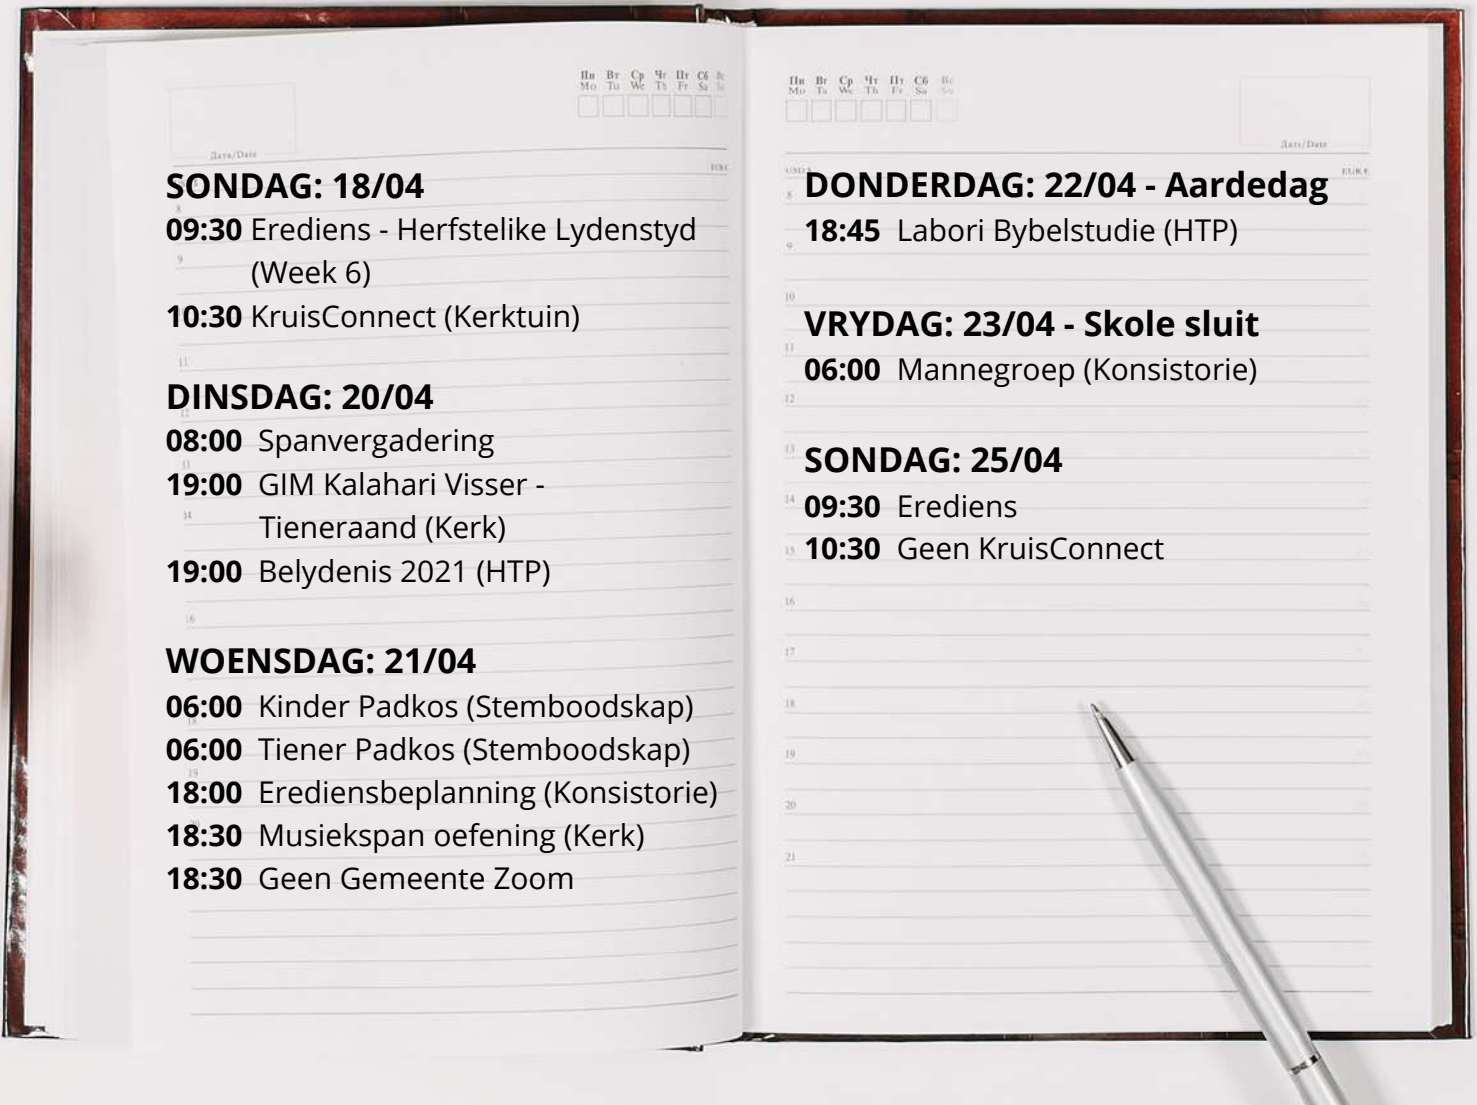 Пн Вт Ср Чт Пт Сб Вс
Mo Tu We Th Fr Sa Su
Дата/Date
SONDAG: 18/04
09:30 Erediens - Herfstelike Lydenstyd
(Week 6)
10:30 KruisConnect (Kerktuin)
DINSDAG: 20/04
08:00 Spanvergadering
19:00 GIM Kalahari Visser -
Tieneraand (Kerk)
19:00 Belydenis 2021 (HTP)
WOENSDAG: 21/04
06:00 Kinder Padkos (Stemboodskap)
06:00 Tiener Padkos (Stemboodskap)
18:00 Erediensbeplanning (Konsistorie)
18:30 Musiekspan oefening (Kerk)
18:30 Geen Gemeente Zoom
Пн Вт Ср Чт Пт Сб Вс
Mo Tu We Th Fr Sa Su
Дата/Date
DONDERDAG: 22/04 - Aardedag
18:45 Labori Bybelstudie (HTP)
VRYDAG: 23/04 - Skole sluit
06:00 Mannegroep (Konsistorie)
SONDAG: 25/04
09:30 Erediens
10:30 Geen KruisConnect
8
9
10
11
12
13
14
15
16
17
18
19
20
21